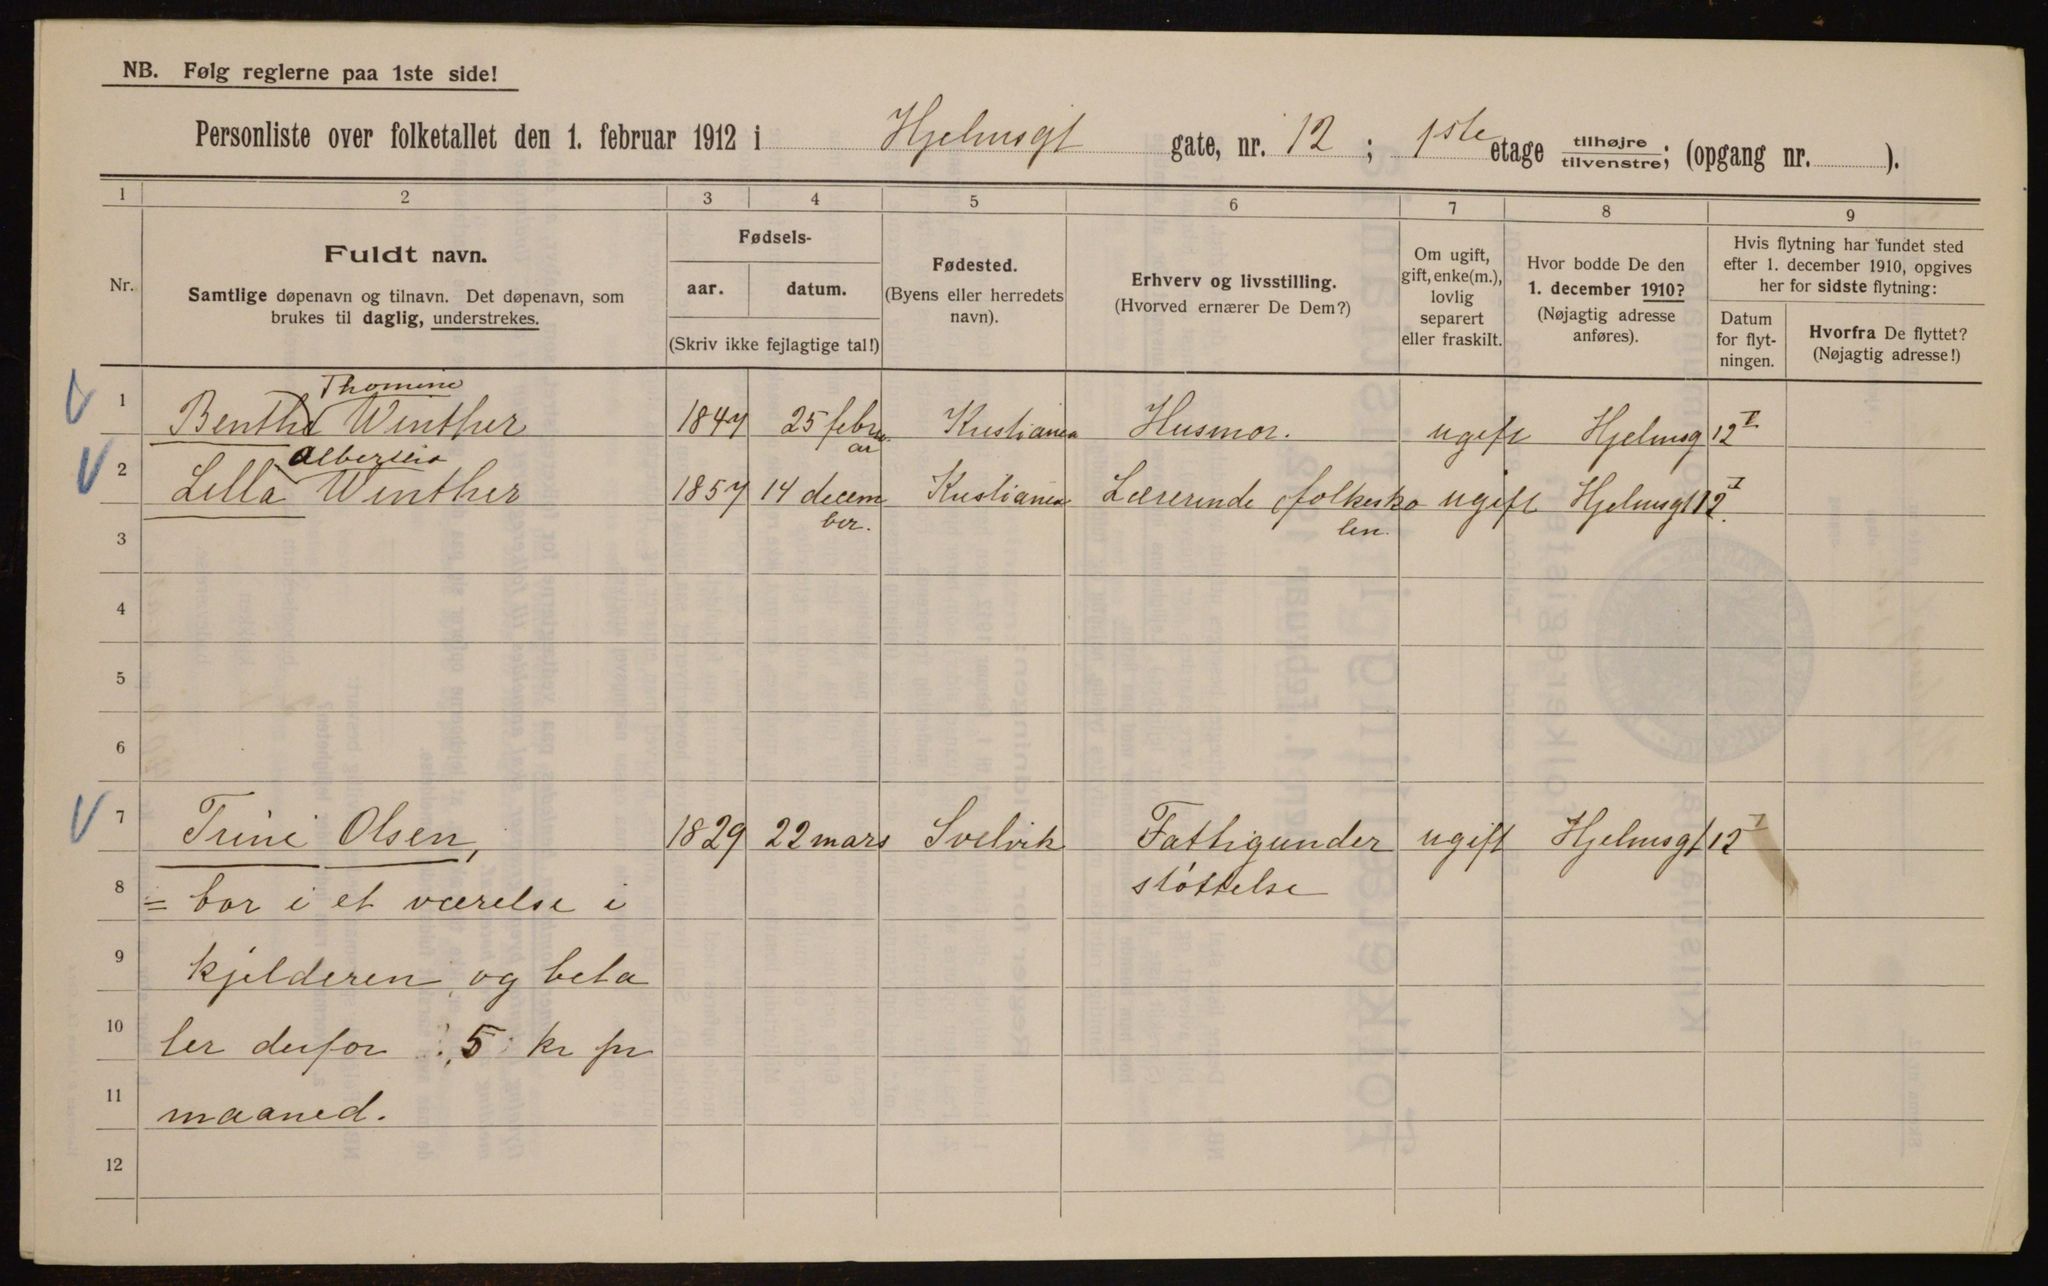 NB. Følg reglerne paa 1ste side!
Personliste over folketallet den 1. februar 1912 i Hjelmsgt gate, nr. 12 ; 1ste etage tilhøjre tilvenstre; (opgang nr. ).
1 2 3 4 5 6 7 8 9
Nr.
Fuldt navn.
Samtlige døpenavn og tilnavn. Det døpenavn, som
brukes til daglig, understrekes.
Fødsels-
aar. datum.
(Skriv ikke fejlagtige tal!)
Fødested.
(Byens eller herredets
navn).
Erhverv og livsstilling.
(Hvorved ernærer De Dem?)
Om ugift,
gift, enke(m.),
lovlig
separert
eller fraskilt.
Hvor bodde De den
1. december 1910?
(Nøjagtig adresse
anføres).
Hvis flytning har fundet sted
efter 1. december 1910, opgives
her for sidste flytning:
Datum
for flyt-
ningen.
Hvorfra De flyttet?
(Nøjagtig adresse!)
Thomine
1 Benthe Winther 1847 25 febru Kristiania Husmor. ugift Hjelmsg 12 I
ar
2 Lilla Winther 1857 14 decem Kristiania Lærerinde folkesko ugift Hjelmsgt 12 I
ber. len.
3
4
5
6
7 Trine Olsen, 1829 22 mars Svelvik Fattigunder ugift Hjelmsgt 12
støttelse
8 = bor i et værelse i
9 kjelderen og beta
10 ler derfor 5 kr pr
11 maaned.
12